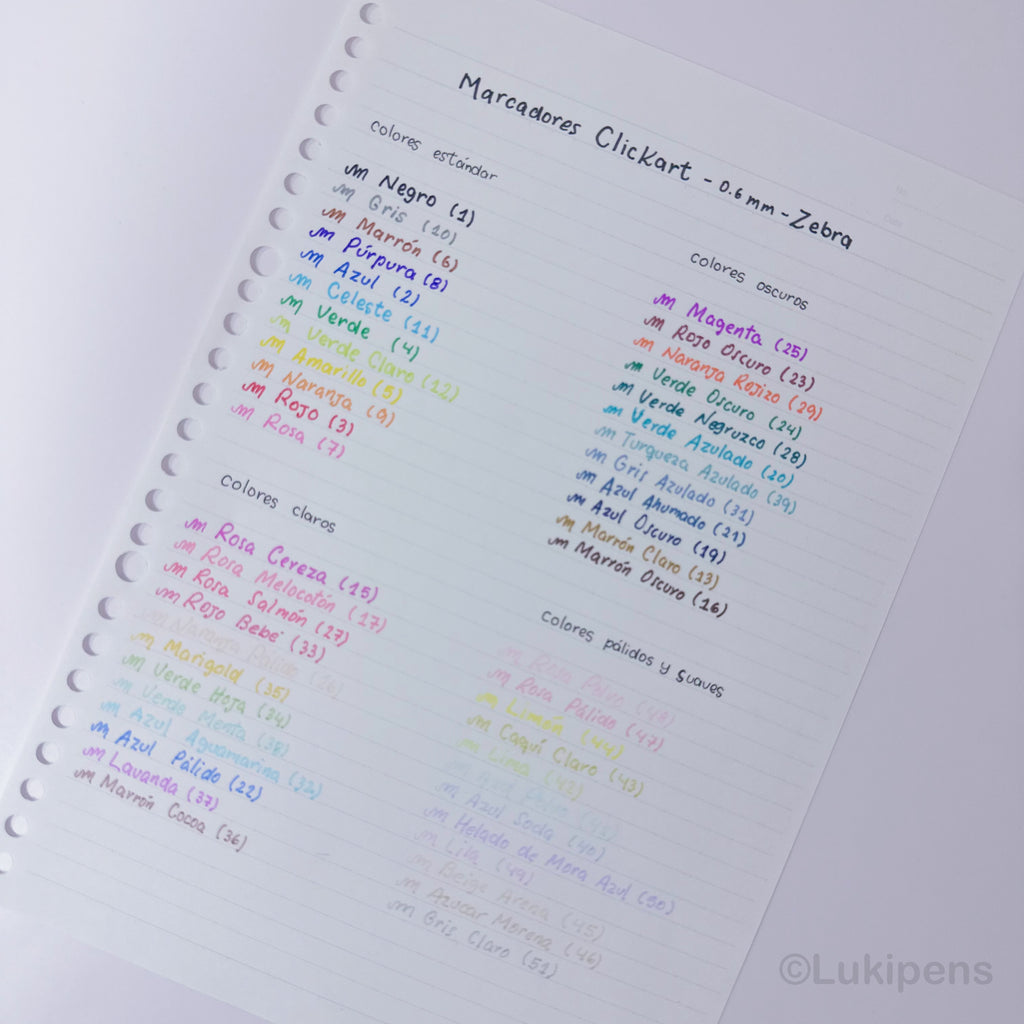 Marcadores Clickart - 0.6 mm - Zebra
colores estándar
Negro (1)
Gris (10)
Marrón (6)
Púrpura (8)
Azul (2)
Celeste (11)
Verde (4)
Verde Claro (12)
Amarillo (5)
Naranja (9)
Rojo (3)
Rosa (7)
colores claros
Rosa Cereza (15)
Rosa Melocotón (17)
Rosa Salmón (27)
Rojo Bebé (33)
Naranja Pálido (26)
Marigold (35)
Verde Hoja (34)
Verde Menta (38)
Azul Aguamarina (32)
Azul Pálido (22)
Lavanda (37)
Marrón Cocoa (36)
colores oscuros
Magenta (25)
Rojo Oscuro (23)
Naranja Rojizo (29)
Verde Oscuro (24)
Verde Negruzco (28)
Verde Azulado (20)
Turqueza Azulado (39)
Gris Azulado (31)
Azul Ahumado (21)
Azul Oscuro (19)
Marrón Claro (13)
Marrón Oscuro (16)
colores pálidos y suaves
Rosa Polvo (48)
Rosa Pálido (47)
Limón (44)
Caquí Claro (43)
Lima (42)
Polvo (41)
Azul Soda (40)
Helado de Mora Azul (50)
Lila (49)
Beige Arena (45)
Azucar Morena (46)
Gris Claro (51)
©Lukipens